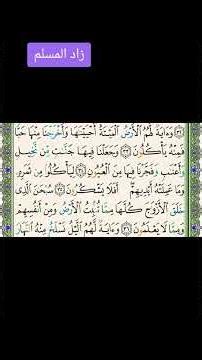 زاد المسلم
وَءَايَةٌ لَّهُمُ الْأَرْضُ الْمَيْتَةُ أَحْيَيْنَاهَا وَأَخْرَجْنَا مِنْهَا حَبًّا
فَمِنْهُ يَأْكُلُونَ ٣٣ وَجَعَلْنَا فِيهَا جَنَّاتٍ مِّن نَّخِيلٍ
وَأَعْنَابٍ وَفَجَّرْنَا فِيهَا مِنَ الْعُيُونِ ٣٤ لِيَأْكُلُوا مِن ثَمَرِهِ
وَمَا عَمِلَتْهُ أَيْدِيهِمْ أَفَلَا يَشْكُرُونَ ٣٥ سُبْحَانَ الَّذِي
خَلَقَ الْأَزْوَاجَ كُلَّهَا مِمَّا تُنبِتُ الْأَرْضُ وَمِنْ أَنفُسِهِمْ
وَمِمَّا لَا يَعْلَمُونَ ٣٦ وَءَايَةٌ لَّهُمُ اللَّيْلُ نَسْلَخُ مِنْهُ النَّهَارَ